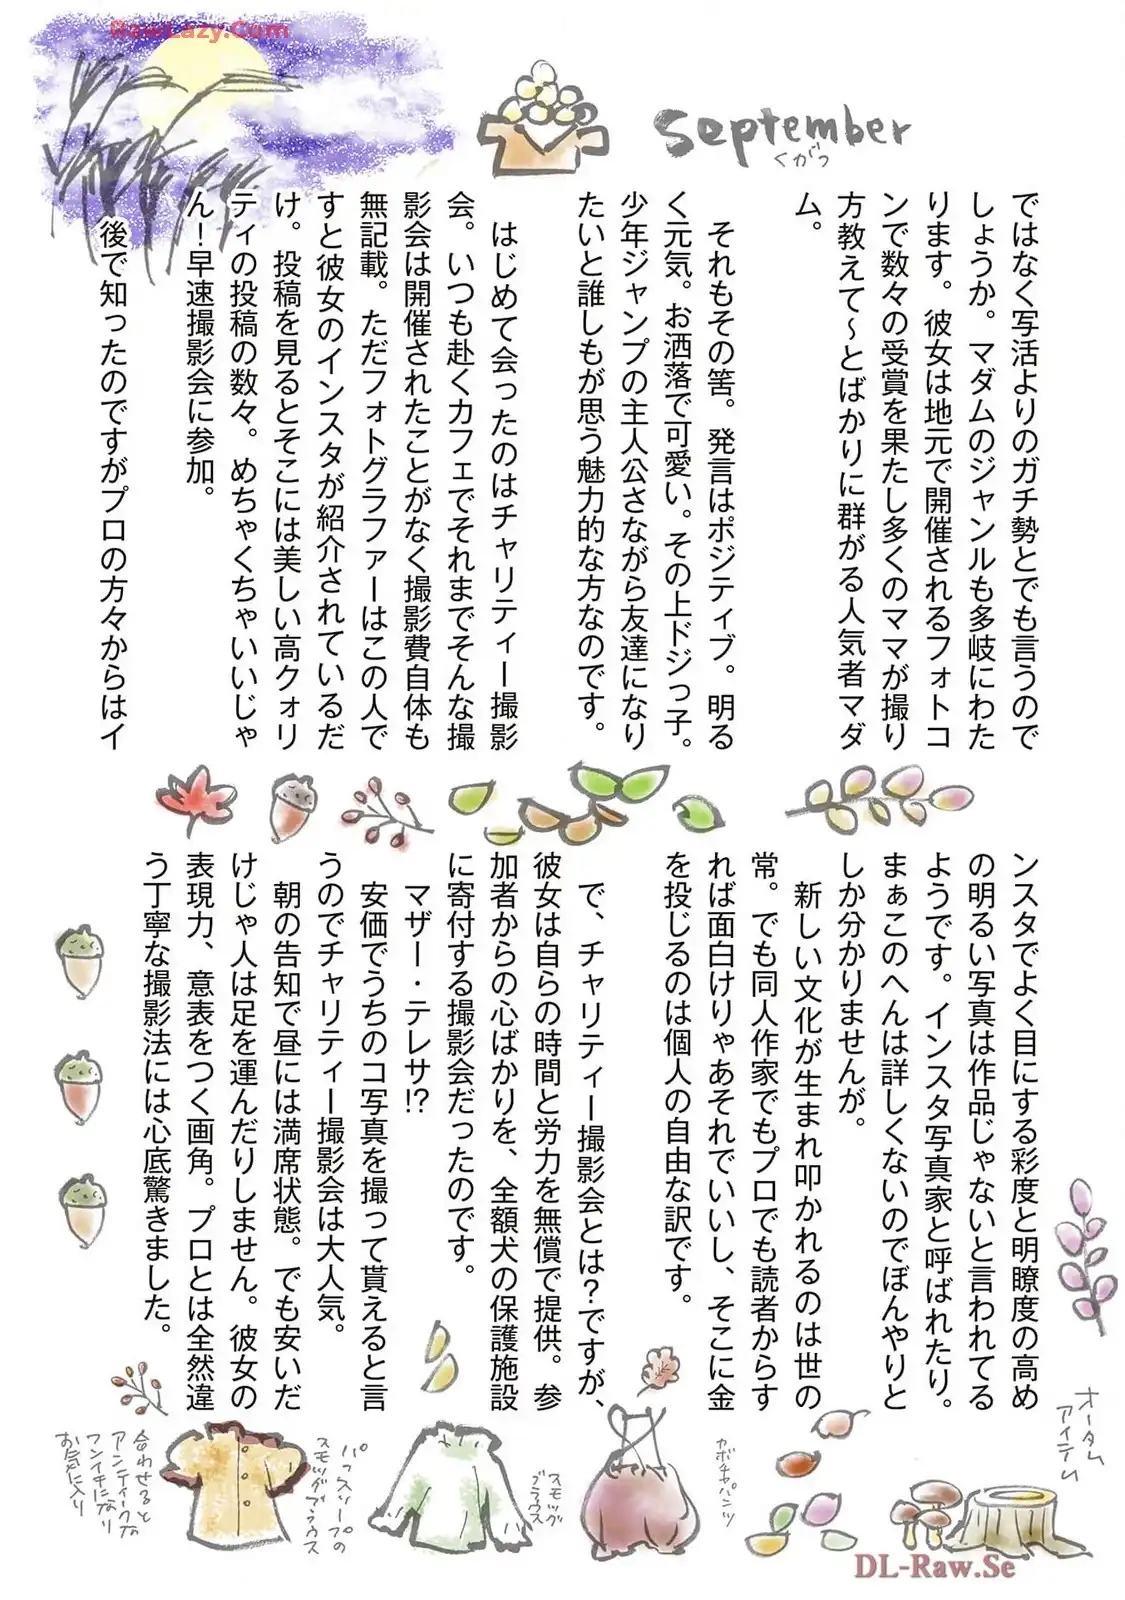 RawLazy.Com
September
くがつ
ではなく写活よりのガチ勢とでも言うので
しょうか。マダムのジャンルも多岐にわた
ります。彼女は地元で開催されるフォトコ
ンで数々の受賞を果たし多くのママが撮り
方教えて〜とばかりに群がる人気者マダ
ム。
それもその筈。発言はポジティブ。明る
く元気。お洒落で可愛い。その上ドジっ子。
少年ジャンプの主人公さながら友達になり
たいと誰しもが思う魅力的な方なのです。
はじめて会ったのはチャリティー撮影
会。いつも赴くカフェでそれまでそんな撮
影会は開催されたことがなく撮影費自体も
無記載。ただフォトグラファーはこの人で
すと彼女のインスタが紹介されているだ
け。投稿を見るとそこには美しい高クォリ
ティの投稿の数々。めちゃくちゃいいじゃ
ん！早速撮影会に参加。
後で知ったのですがプロの方々からはイ
ンスタでよく目にする彩度と明瞭度の高め
の明るい写真は作品じゃないと言われてる
ようです。インスタ写真家と呼ばれたり。
まぁこのへんは詳しくないのでぼんやりと
しか分かりませんが。
新しい文化が生まれ叩かれるのは世の
常。でも同人作家でもプロでも読者からす
れば面白けりゃあそれでいいし、そこに金
を投じるのは個人の自由な訳です。
で、チャリティー撮影会とは？ですが、
彼女は自らの時間と労力を無償で提供。参
加者からの心ばかりを、全額犬の保護施設
に寄付する撮影会だったのです。
マザー・テレサ!?
安価でうちのコ写真を撮って貰えると言
うのでチャリティー撮影会は大人気。
朝の告知で昼には満席状態。でも安いだ
けじゃ人は足を運んだりしません。彼女の
表現力、意表をつく画角。プロとは全然違
う丁寧な撮影法には心底驚きました。
オータム
アイテム
カボチャパンツ
スモック
ブラウス
パフスリーブの
スモックブラウス
合わせると
アンティークな
フンイキになり
お気に入り
DL-Raw.Se